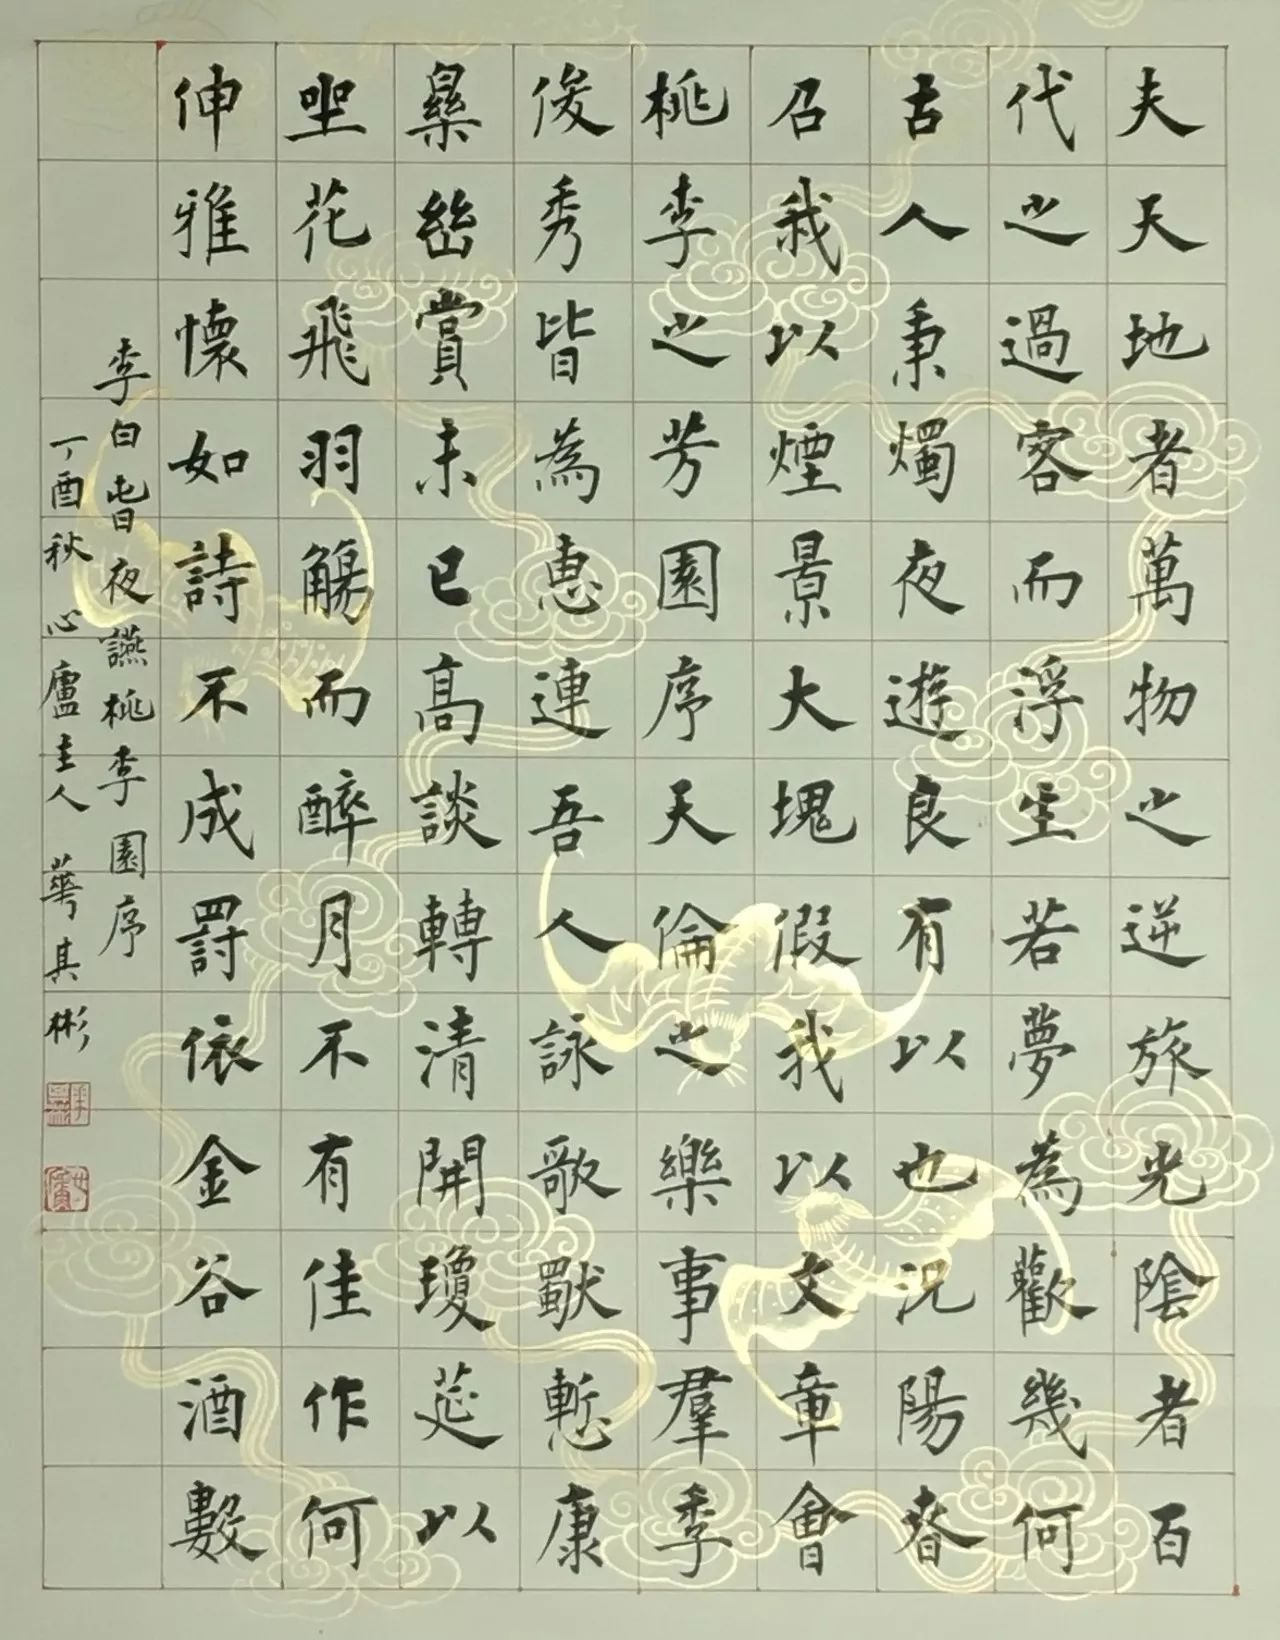 夫天地者萬物之逆旅光陰者百
代之過客而浮生若夢為歡幾何
古人秉燭夜遊良有以也況陽春
召我以煙景大塊假我以文章會
桃李之芳園序天倫之樂事羣季
俊秀皆為惠連吾人詠歌獨慙康
樂幽賞未已高談轉清開瓊筵以
坐花飛羽觴而醉月不有佳作何
伸雅懷如詩不成罰依金谷酒數
李白春夜讌桃李園序
丁酉秋 心廬主人 華其彬